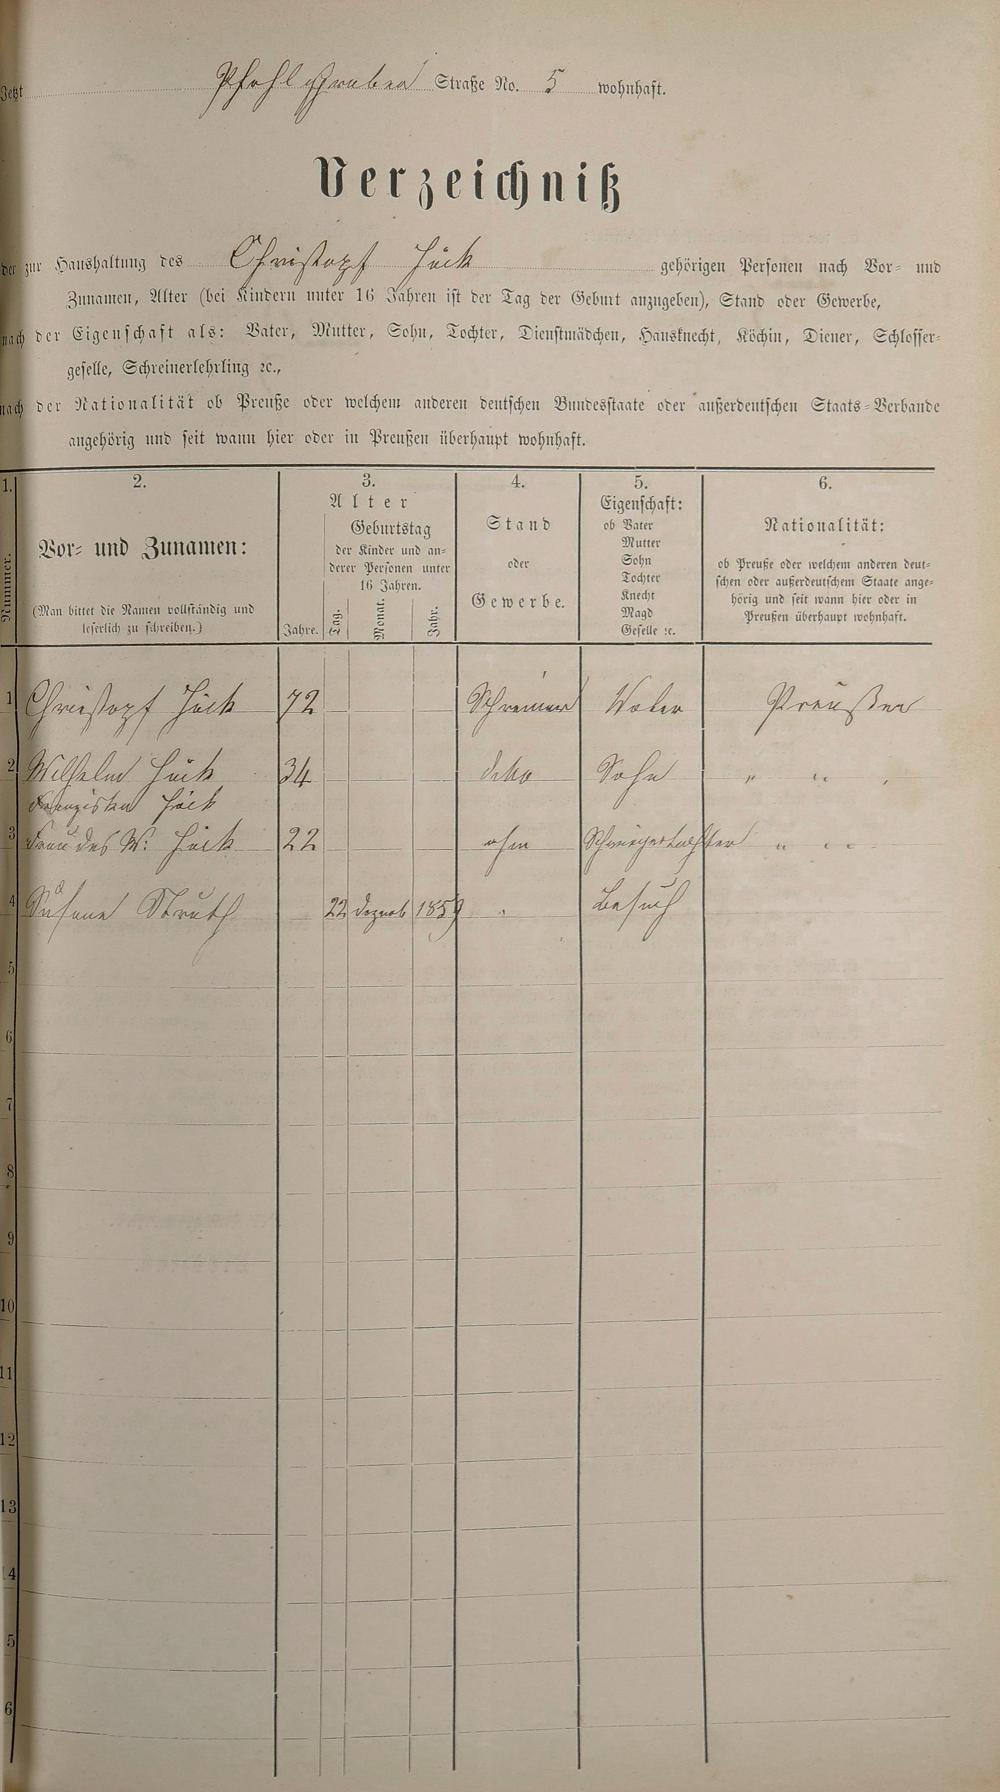 Jetzt Pfahlgraben Straße No. 5 wohnhaft.
Verzeichniß
der zur Haushaltung des Christopf Hück gehörigen Personen nach Vor- und
Zunamen, Alter (bei Kindern unter 16 Jahren ist der Tag der Geburt anzugeben), Stand oder Gewerbe,
nach der Eigenschaft als: Vater, Mutter, Sohn, Tochter, Dienstmädchen, Hausknecht, Köchin, Diener, Schlosser-
geselle, Schreinerlehrling ꝛc.,
nach der Nationalität ob Preuße oder welchem anderen deutschen Bundesstaate oder außerdeutschen Staats-Verbande
angehörig und seit wann hier oder in Preußen überhaupt wohnhaft.
1. Nummer.
2.
Vor- und Zunamen:
(Man bittet die Namen vollständig und
leserlich zu schreiben.)
3.
Alter
Jahre.
Geburtstag
der Kinder und an-
derer Personen unter
16 Jahren.
Tag. Monat. Jahr.
4.
Stand
oder
Gewerbe.
5.
Eigenschaft:
ob Vater
Mutter
Sohn
Tochter
Knecht
Magd
Geselle ꝛc.
6.
Nationalität:
ob Preuße oder welchem anderen deut-
schen oder außerdeutschem Staate ange-
hörig und seit wann hier oder in
Preußen überhaupt wohnhaft.
1 Christopf Hück 72 Schreiner Vater Preußen
2 Wilhelm Hück 34 ditto Sohn " "
Franziska Hück
3 Frau des W: Hück 22 ohne Schwiegertochter " "
4 Susane Struth 22 1859 " Besuch
5
6
7
8
9
10
11
12
13
14
5
6